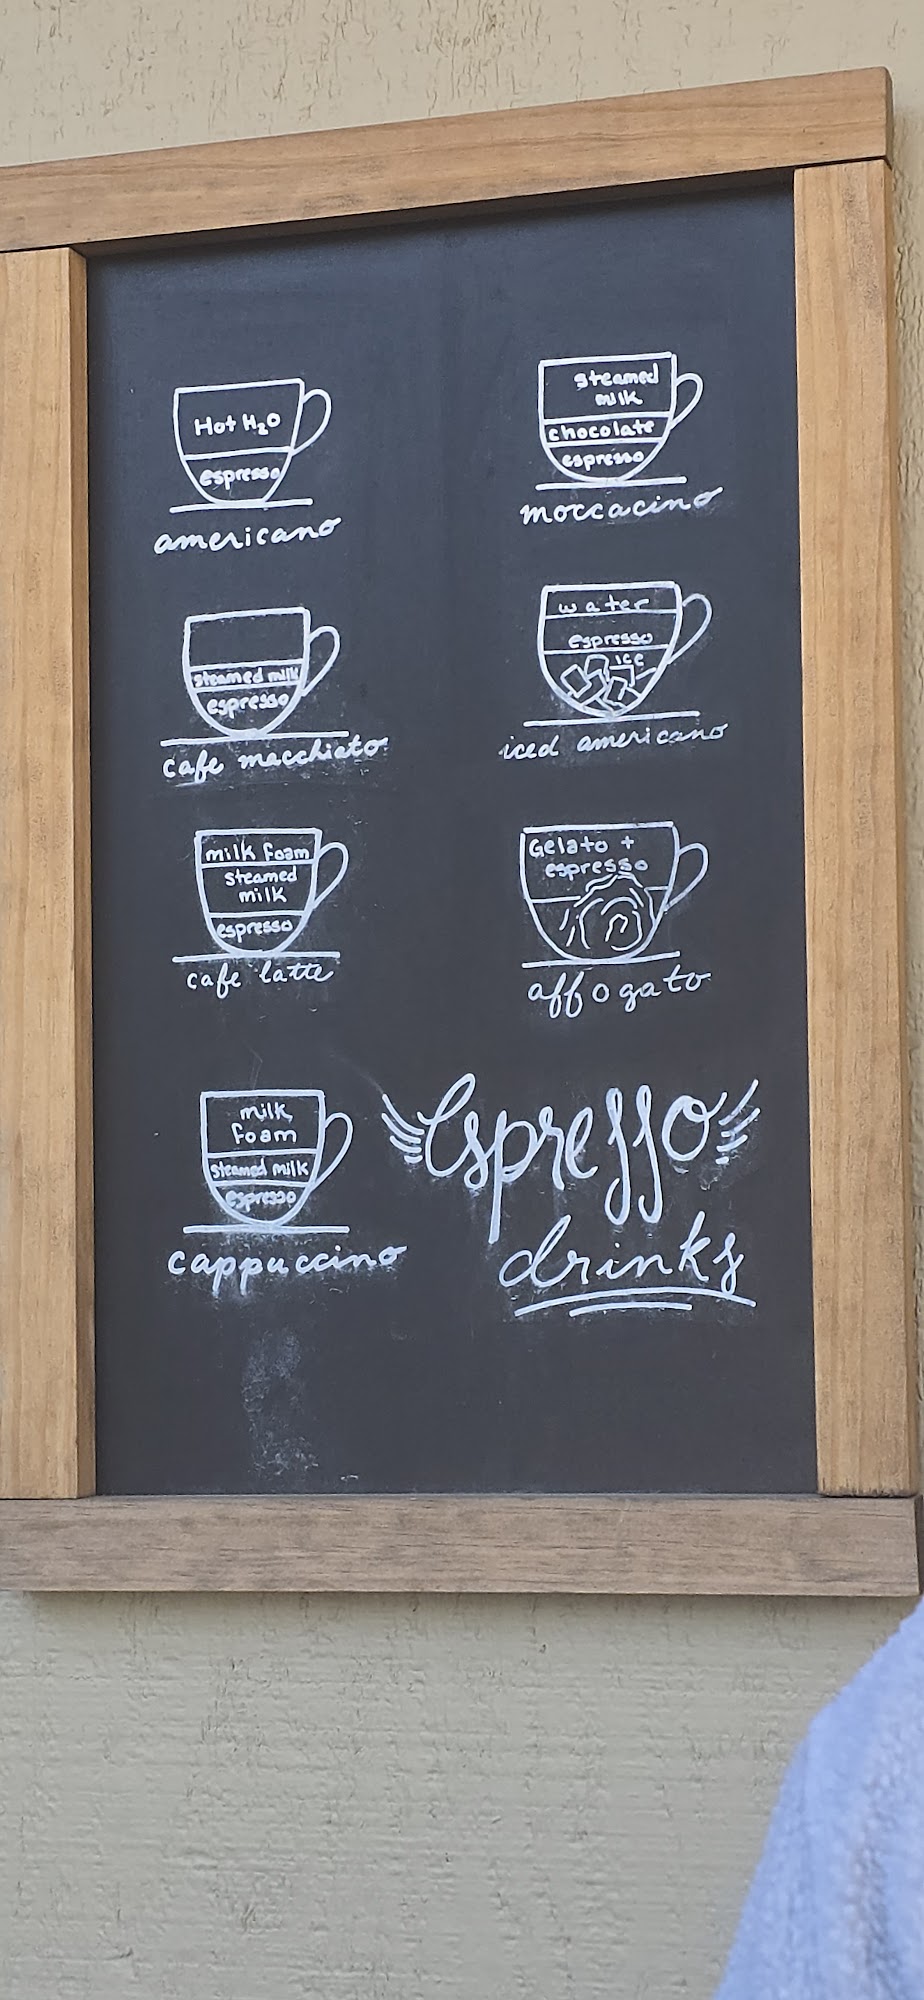 Hot H₂O
espresso
americano
steamed milk
espresso
cafe macchiato
milk foam
steamed
milk
espresso
cafe latte
milk
foam
steamed milk
espresso
cappuccino
steamed
milk
chocolate
espresso
moccacino
water
espresso
ice
iced americano
Gelato +
espresso
affogato
Espresso
drinks